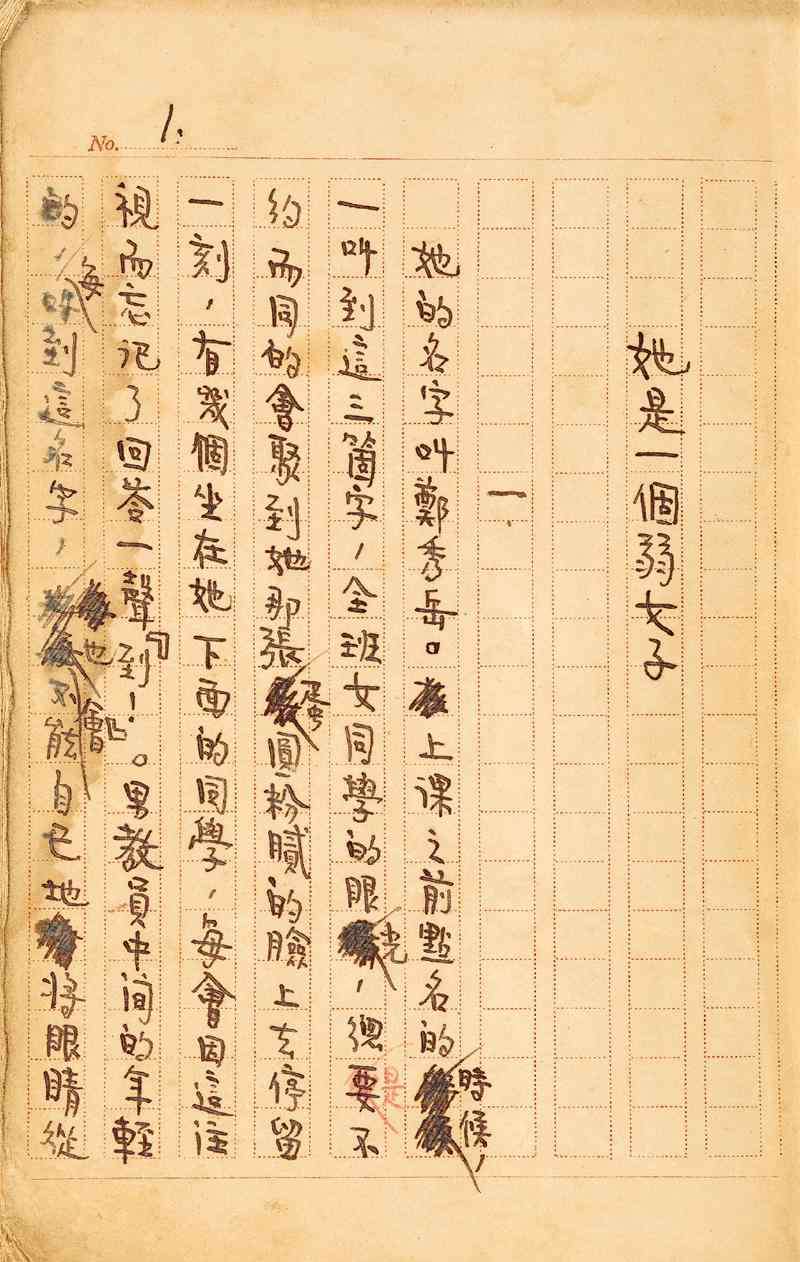 No. 1.
她是一個弱女子
一.
她的名字叫鄭秀岳。上課之前點名的時候，
一叫到這三箇字，全班女同學的眼光，總是不
約而同的會聚到她那張蛋圓粉膩的臉上去停留
一刻，有幾個坐在她下面的同學，每會因這注
視而忘記了回答一聲『到！』。男教員中间的年輕
的，每叫到這名字，也會不能自已地將眼睛從